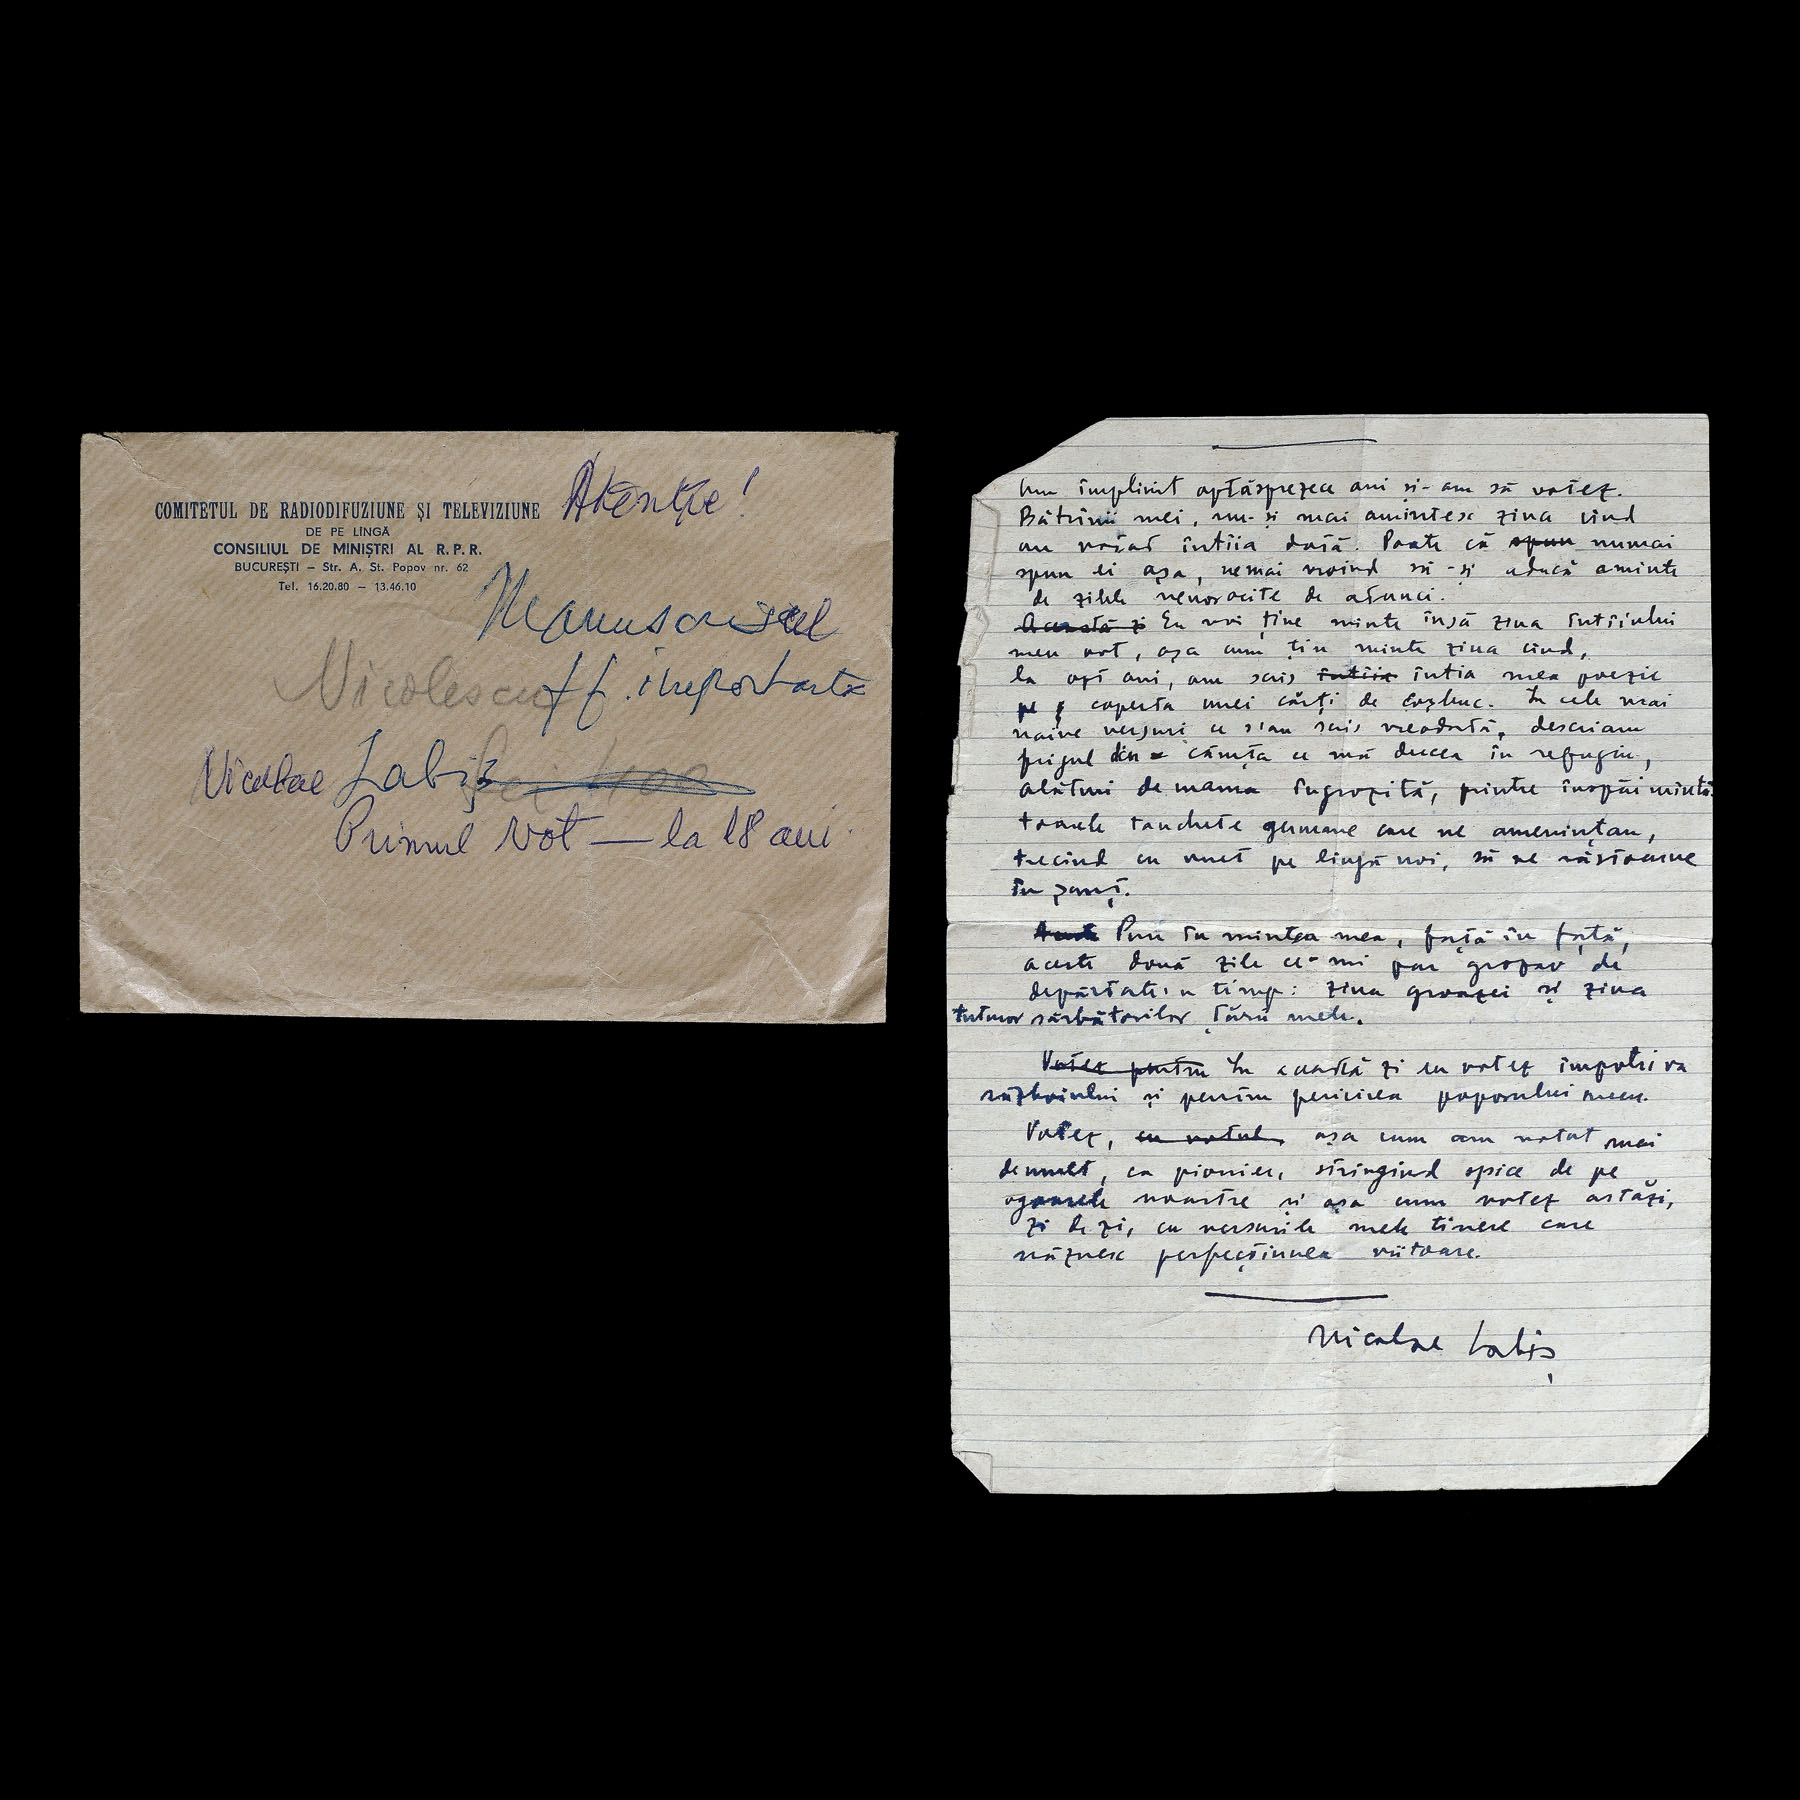 COMITETUL DE RADIODIFUZIUNE ȘI TELEVIZIUNE
DE PE LINGĂ
CONSILIUL DE MINIȘTRI AL R.P.R.
BUCUREȘTI – Str. A. St. Popov nr. 62
Tel. 16.20.80 – 13.46.10
Atenție!
Manuscrisul
Nicolescu
ff. importantă
Nicolae Labiș
Primul Vot — la 18 ani
Am împlinit optăsprezece ani și-am să votez.
Bătrînii mei, nu-și mai amintesc ziua cînd
au votat întîia dată. Poate că spun numai
spun ei așa, nemai vroind să-și aducă aminte
de zilele nenorocite de atunci.
Această zi Eu voi ține minte însă ziua întîiului
meu vot, așa cum țin minte ziua cînd,
la opt ani, am scris întîia întîia mea poezie
pe coperta unei cărți de Coșbuc. În cele mai
naive versuri ce s'au scris vreodată, descriam
frigul din căruța ce mă ducea în refugiu,
alături de mama îngrozită, printre înspăimîntă
toarele tanchete germane care ne amenințau,
trecînd cu vuet pe lîngă noi, să ne răstoarne
în șanț.
Pun în mintea mea, față în față,
aceste două zile ce-mi par grozav de
depărtate'n timp: ziua groazei și ziua
tuturor sărbătorilor țării mele.
Votez pentru În această zi eu votez împotriva
războiului și pentru fericirea poporului meu.
Votez, cu votul, așa cum am votat mai
demult, ca pionier, strîngînd spice de pe
ogoarele noastre și așa cum votez astăzi,
zi de zi, cu versurile mele tinere care
năzuesc perfecțiunea viitoare.
Nicolae Labiș